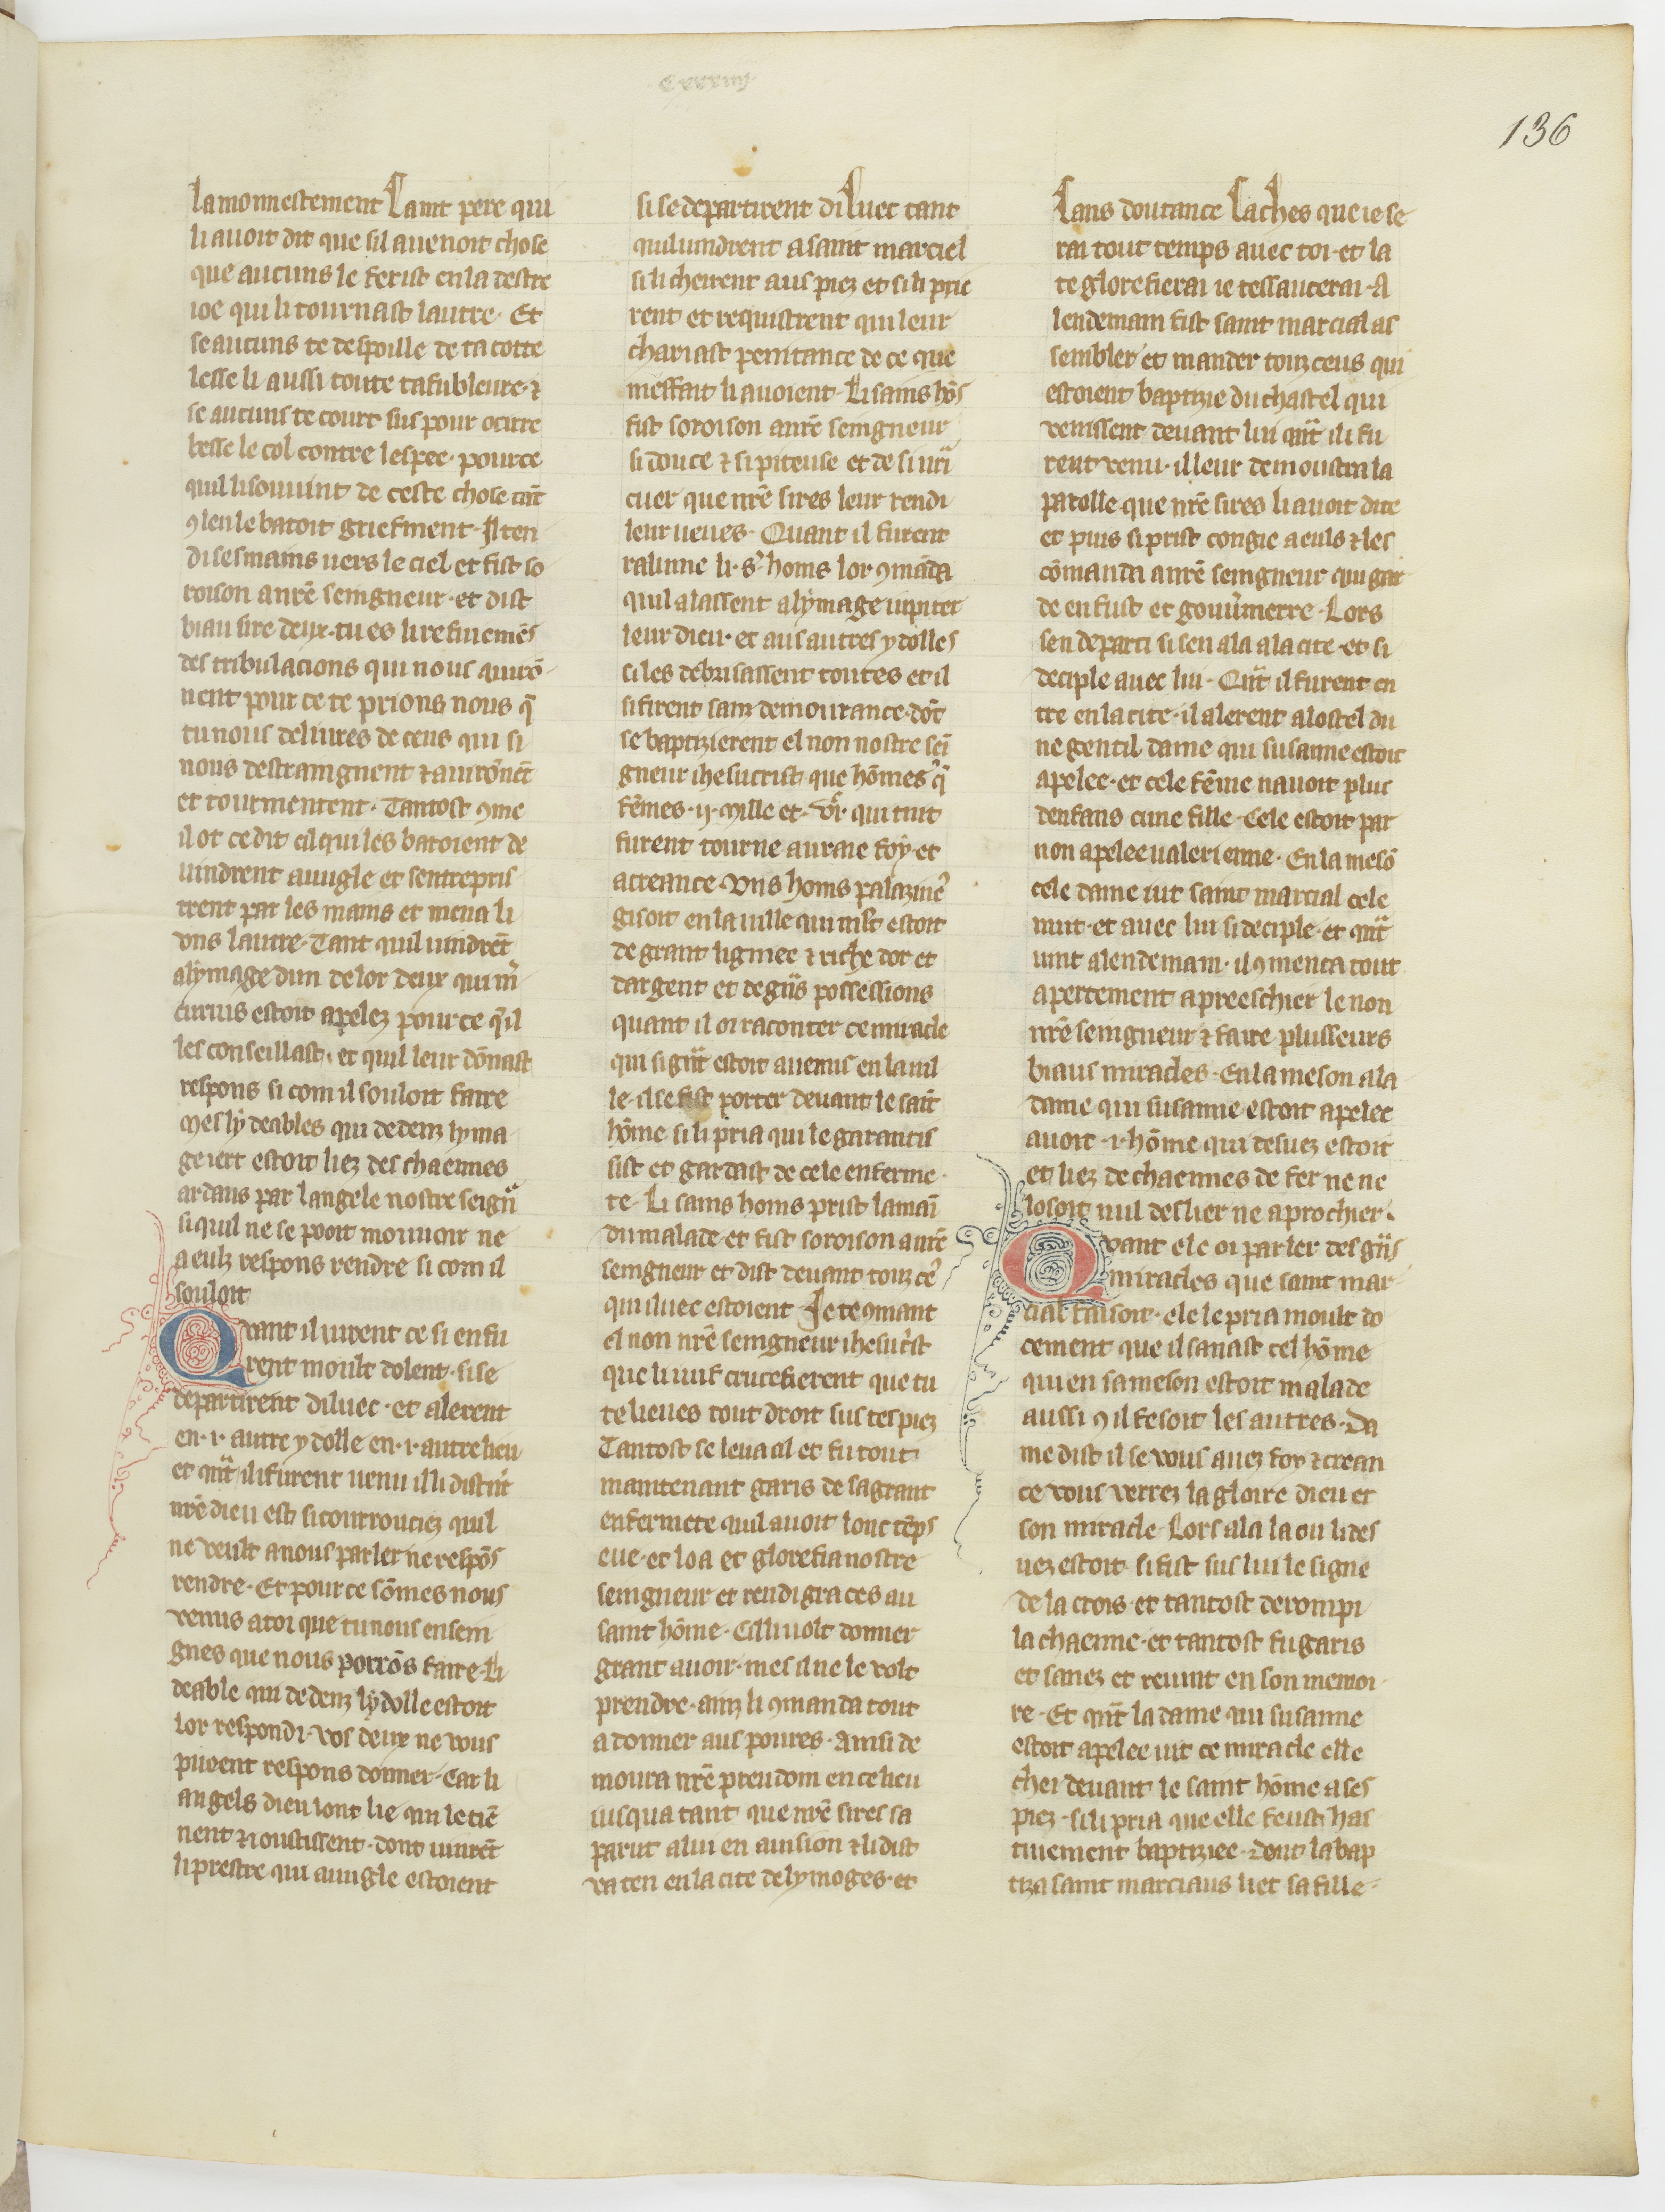 Cxxxiiij
136
lamonnestement saint pere qui
li auoit dit que sil auenoit chose
que aucuns le ferist en la destre
ioe qui li tournast lautre · Et
se aucuns te despoille de ta cotte
lesse li aussi toute ta fubleure · ⁊
se aucuns te court sus pour ocirre
besse le col contre lespee · pour ce
quil li souuint de ceste chose tāt
ꝯ len le batoit griefment · Il ten
di ses mains uers le ciel et fist so
roison a nr̄e seingneur · et dist
biau sire deux · tu es li refuiemēs
des tribulacions qui nous auirō
nent pour ce te prions nous q̄
tu nous deliures de ceus qui si
nous destraingnent ⁊ auirōnēt
et tourmentent · Tantost ꝯme
il ot ce dit cil qui les batoient de
uindrent auugle et sentrepris
trent par les mains et mena li
vns lautre · Tant quil uindrēt
a lymage dun de lor deux qui m̄
curius estoit apelez pour ce q̄ il
les conseillast · et quil leur dōnast
respons si com il souloit faire
Mes ly deables qui dedenz lyma
ge iert estoit liez des chaennes
ardans par langele nostre seignr̄
si quil ne se pooit mouuoir ne
a eulz respons rendre si com il
souloit
Qvant il uirent ce si en fu
rent moult dolent · si se
departirent diluec · et alerent
en · i · autre ydolle en · i · autre lieu
et qn̄t il i furent uenu il li distrēt
nr̄e dieu est si courrouciez quil
ne veult a nous parler ne respōs
rendre · Et pour ce sōmes nous
venus a toi que tu nous ensein
gnes que nous porrōs faire · Li
deable qui dedenz lydolle estoit
lor respondi · vos deux ne vous
puuent respons donner · Car li
angels dieu lont lie qui le tiē
nent ⁊ ioustissent · dont uinrēt
li prestre qui auugle estoient
si se departirent diluec tant
quil uindrent a saint marciel
si li cheirent aus piez et si li prie
rent et requistrent qui leur
chariast penitance de ce que
meffait li auoient · Li sains hōs
fist soroison a nr̄e seingneur
si douce ⁊ si piteuse et de si urāi
cuer que nr̄e sires leur rendi
leur ueues · Quant il furent
ralume li · s · homs lor ꝯmāda
quil alassent a lymage iupiter
leur dieu · et aus autres ydolles
si les debrisassent toutes et il
si firent sanz demourance · dōt
se baptizierent el non nostre sei
gneur ihesucrist · que hōmes q̄
fēmes · ij · Mille et · vc · qui tuit
furent tourne a uraie foy · et
a creance · Vns homs palazine᷒
gisoit en la uille qui mlt̄ estoit
de grant lignice ⁊ riche dor et
dargent et de gn̄s possessions
quant il oi raconter ce miracle
qui si gn̄t estoit auenus en la uil
le · il se fist porter deuant le sait̄
hōme si li pria qui le garantis
sist et gardast de cele enferme
te · Li sains homs prist la mai̅
du malade · et fist soroison a nr̄e
seingneur et dist deuant touz ce᷒
qui iluec estoient · Je te ꝯmant
el non nr̄e seingneur ihesucrist
que li iuif crucefierent que tu
te lieues tout droit sus tes piez
Tantost se leua cil et fu tout
maintenant garis de sa grant
enfermete quil auoit lonc tēps
eue · et loa et glorefia nostre
seingneur et rendi graces au
saint hōme · Cil li uolt donner
grant auoir · mes il ne le volt
prendre · ainz li ꝯmanda tout
a donner aus poures · Ainsi de
moura nr̄e preudom en ce lieu
iusqua tant que nr̄e sires sa
parut a lui en auision ⁊ li dist
va ten en la cite de lymoges · et
sans doutance saches que ie se
rai tout temps auec toi · et la
te glorefierai ie tessaucerai · A
lendemain fist saint marcial as
sembler et mander touz ceus qui
estoient baptizie du chastel qui
venissent deuant lui qn̄t il i fu
rent venu · il leur demoustra la
parolle que nr̄e sires li auoit dite
et puis si prist congie a euls ⁊ les
cōmanda a nr̄e seingneur qui gar
de en fust et gouu̅nierre · Lors
sen departi si sen ala a la cite · et si
deciple auec lui · Qn̄t il furent en
tre en la cite · il alerent a lostel du
ne gentil dame qui susanne estoit
apelee · et cele fēme nauoit plus
denfans cune fille · Cele estoit par
non apelee ualerienne · En la mesō
cele dame iut saint marcial cele
nuit · et auec lui si deciple · et qn̄t
uint a lendemain · il ꝯmenca tout
apertement a preeschier le non
nr̄e seingneur ⁊ faire plusseurs
biaus miracles · En la meson a la
dame qui susanne estoit apelee
auoit · i · hōme qui desuez estoit
et liez de chaennes de fer ne ne
losoit nul deslier ne aprochier ·
Qvant ele oi parler des gn̄s
miracles que saint mar
cial faisoit · ele le pria moult do
cement que il sanast cel hōme
qui en sa meson estoit malade
aussi ꝯ il fesoit les autres · Da
me dist il se vous auez foy ⁊ crean
ce vous verrez la gloire dieu et
son miracle · Lors ala la ou li des
uez estoit · si fist sus lui le signe
de la crois · et tantost derompi
la chaenne · et tantost fu garis
et sanez et reuint en son memoi
re · Et qn̄t la dame qui susanne
estoit apelee uit ce miracle elle
chei deuant le saint hōme a ses
piez · si li pria que elle feust has
tiuement baptiziee · dont la bap
tiza saint marciaus li et sa fille ·